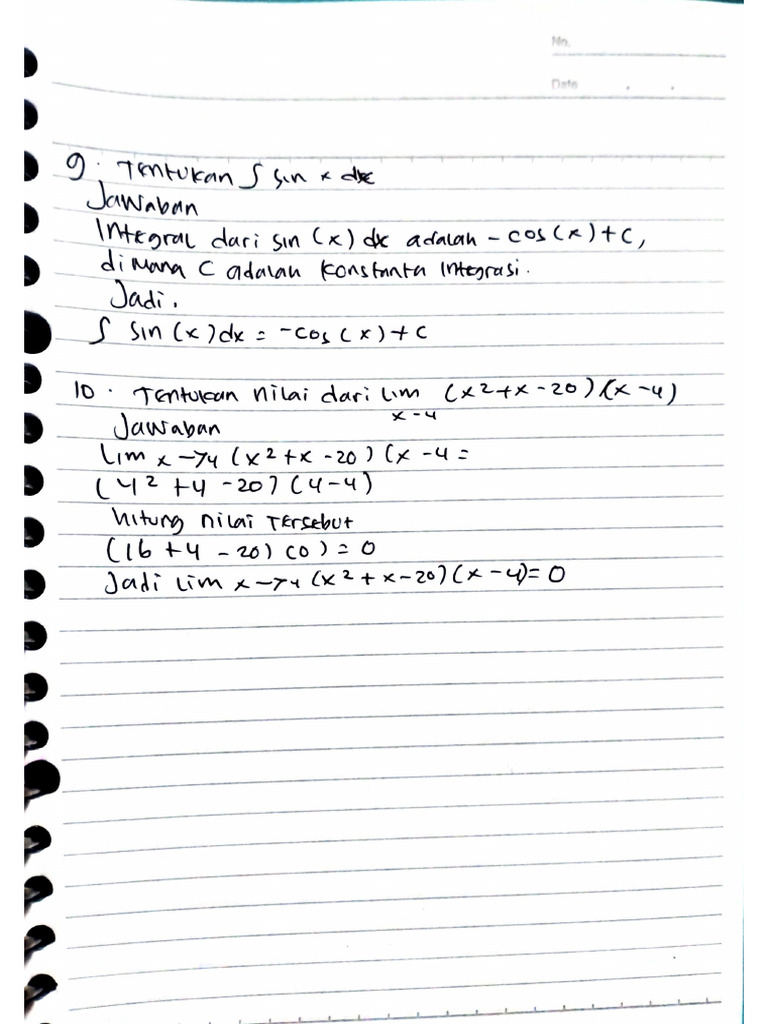 No.
Date
9. Tentukan ∫ sin x dx
Jawaban
Integral dari sin (x) dx adalah - cos(x) + C,
di mana C adalah konstanta integrasi.
Jadi.
∫ sin (x) dx = -cos (x) + C
10. Tentukan nilai dari lim (x2+x-20)(x-4)
x-4
Jawaban
Lim x→4 (x2+x-20) (x-4=
(42 +4 -20) (4-4)
hitung nilai tersebut
(16 +4 - 20) (0) = 0
Jadi Lim x→4 (x2 + x-20) (x-4)= 0